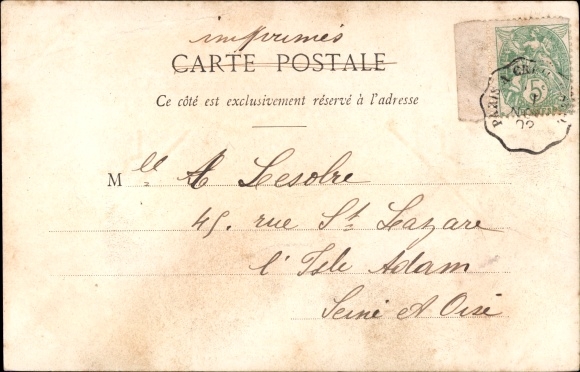 imprimés
CARTE POSTALE
Ce côté est exclusivement réservé à l'adresse
Mlle A Lesobre
45. rue St Lazare
l'Isle Adam
Seine et Oise
PARIS A
5c
02